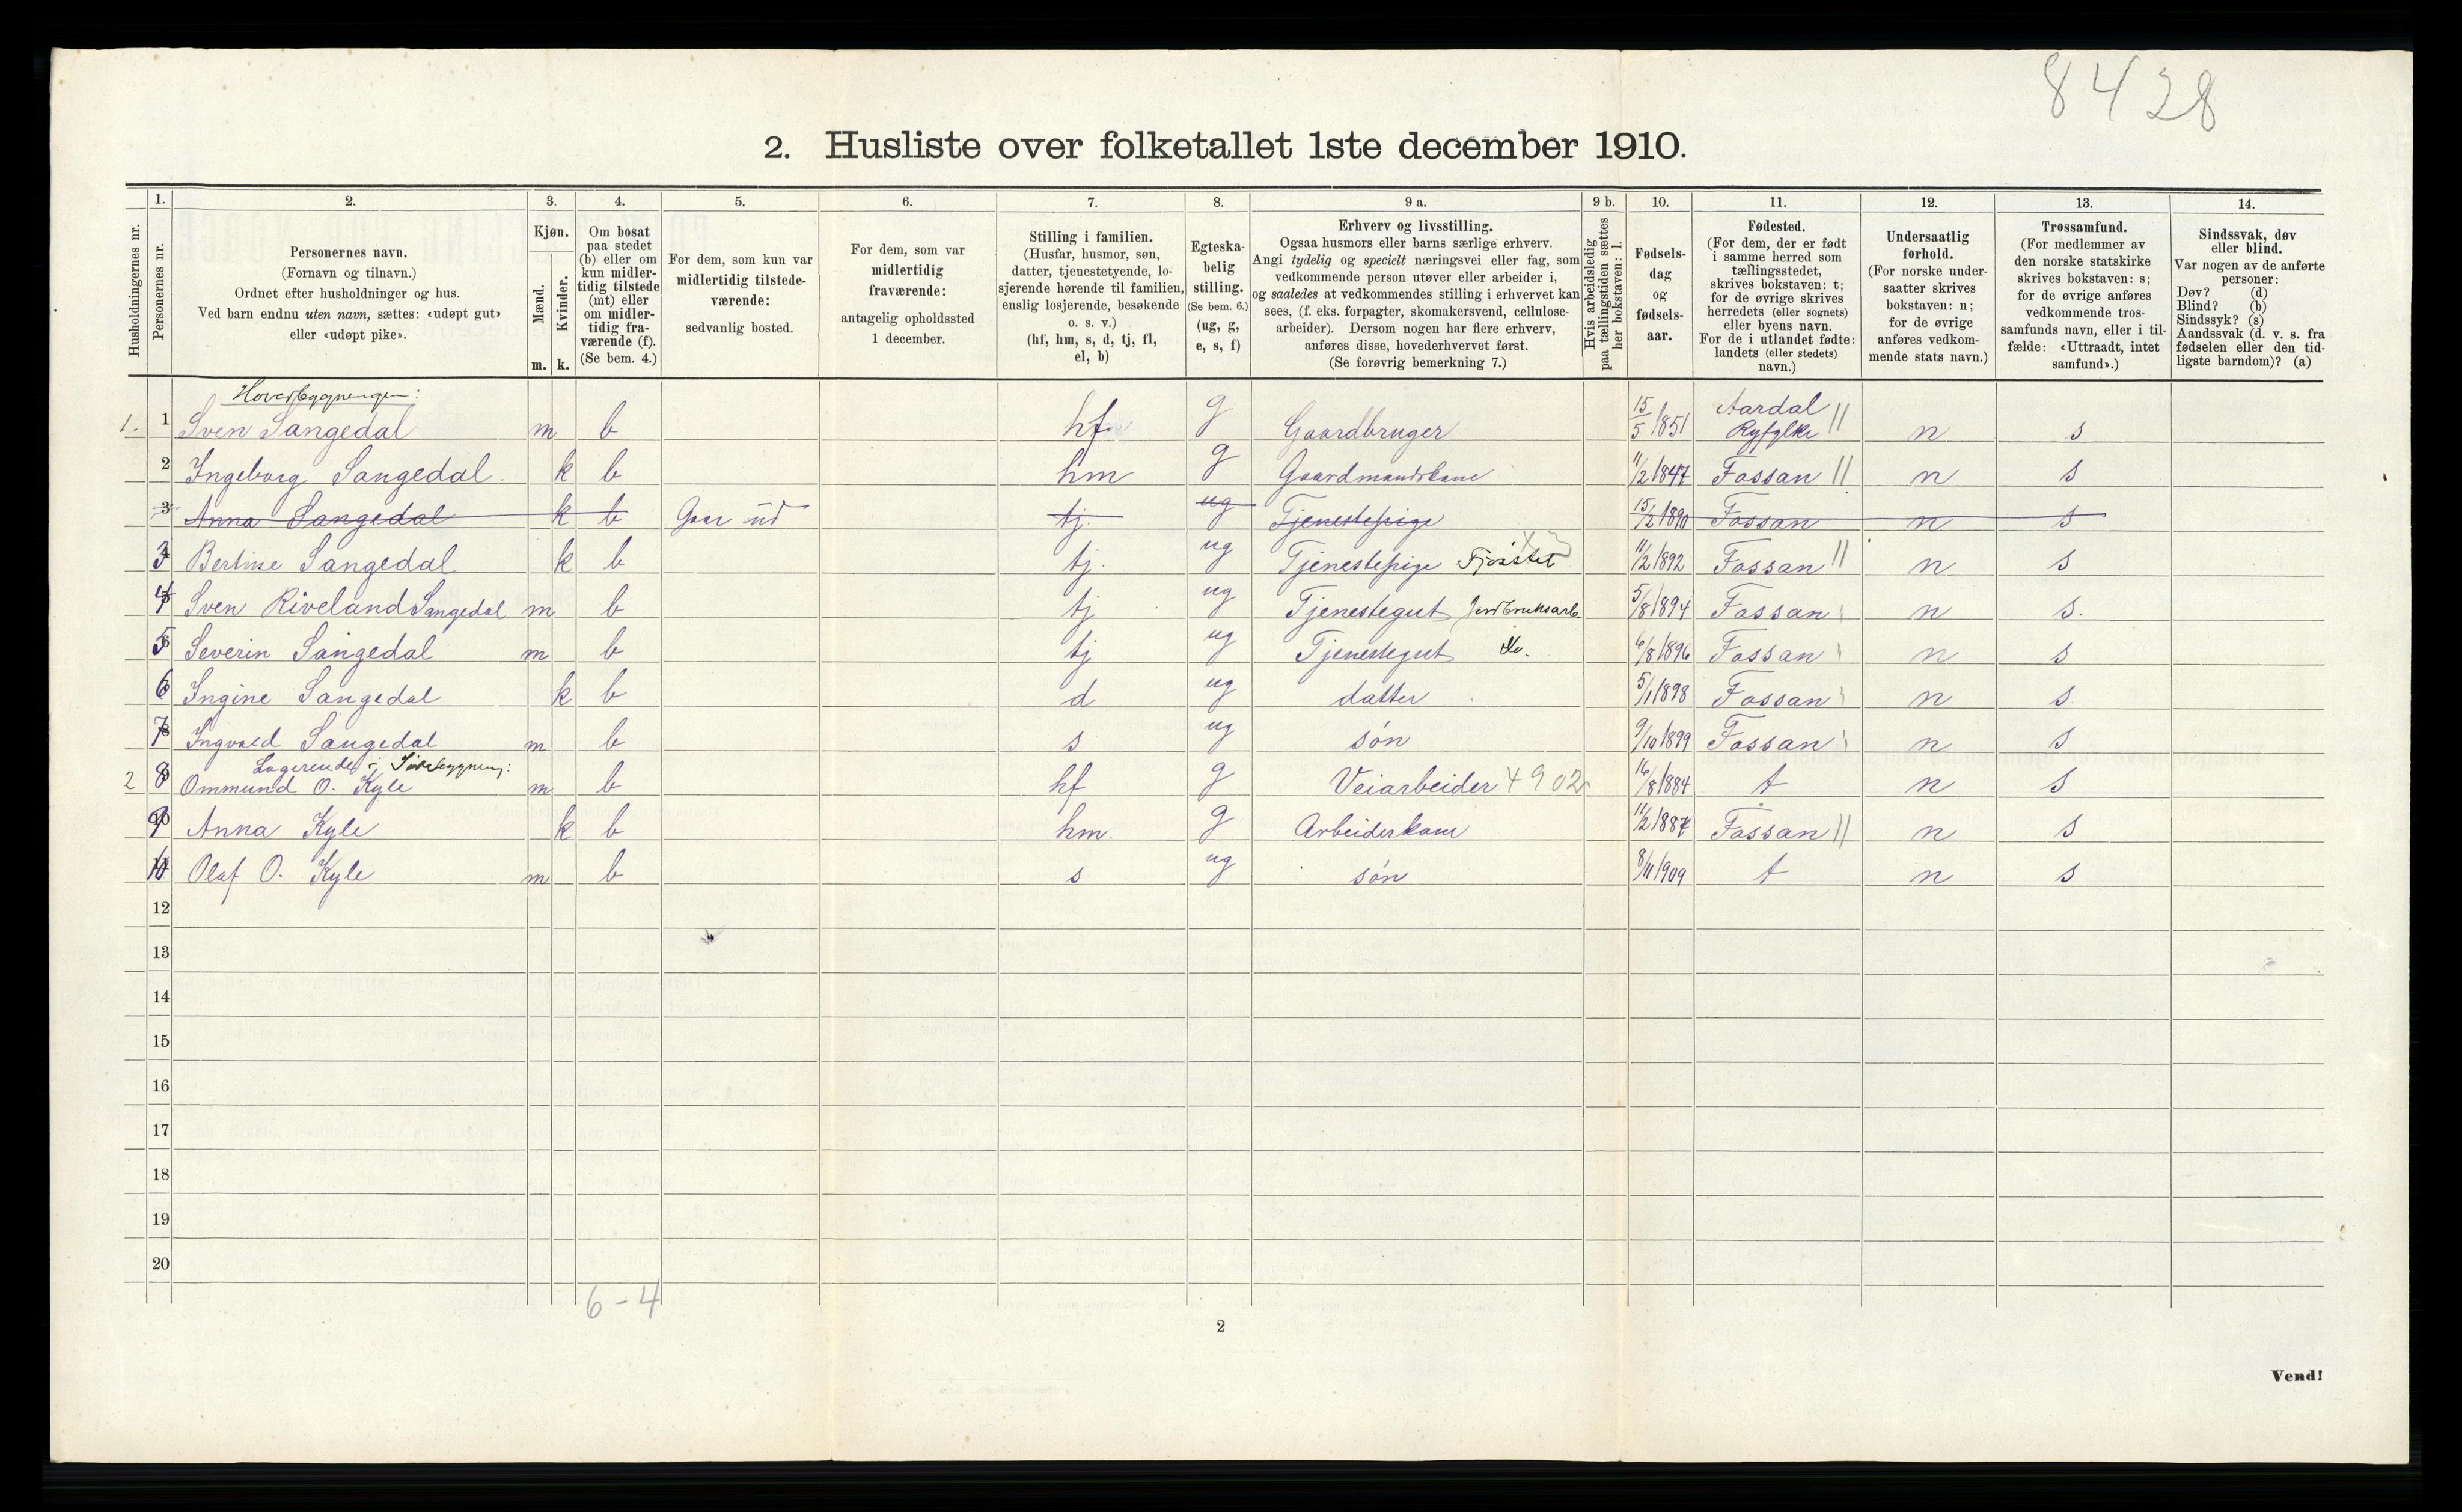 8428
2. Husliste over folketallet 1ste december 1910.
Husholdningernes nr.
1.
Personernes nr.
2.
Personernes navn.
(Fornavn og tilnavn.)
Ordnet efter husholdninger og hus.
Ved barn endnu uten navn, sættes: «udøpt gut»
eller «udøpt pike».
3.
Kjøn.
Mænd.
Kvinder.
m. k.
4.
Om bosat
paa stedet
(b) eller om
kun midler-
tidig tilstede
(mt) eller
om midler-
tidig fra-
værende (f).
(Se bem. 4.)
5.
For dem, som kun var
midlertidig tilstede-
værende:
sedvanlig bosted.
6.
For dem, som var
midlertidig
fraværende:
antagelig opholdssted
1 december.
7.
Stilling i familien.
(Husfar, husmor, søn,
datter, tjenestetyende, lo-
sjerende hørende til familien,
enslig losjerende, besøkende
o. s. v.)
(hf, hm, s, d, tj, fl,
el, b)
8.
Egteska-
belig
stilling.
(Se bem. 6.)
(ug, g,
e, s, f)
9 a.
Erhverv og livsstilling.
Ogsaa husmors eller barns særlige erhverv.
Angi tydelig og specielt næringsvei eller fag, som
vedkommende person utøver eller arbeider i,
og saaledes at vedkommendes stilling i erhvervet kan
sees, (f. eks. forpagter, skomakersvend, cellulose-
arbeider). Dersom nogen har flere erhverv,
anføres disse, hovederhvervet først.
(Se forøvrig bemerkning 7.)
9 b.
Hvis arbeidsledig
paa tællingstiden sættes
her bokstaven: l.
10.
Fødsels-
dag
og
fødsels-
aar.
11.
Fødested.
(For dem, der er født
i samme herred som
tællingsstedet,
skrives bokstaven: t;
for de øvrige skrives
herredets (eller sognets)
eller byens navn.
For de i utlandet fødte:
landets (eller stedets)
navn.)
12.
Undersaatlig
forhold.
(For norske under-
saatter skrives
bokstaven: n;
for de øvrige
anføres vedkom-
mende stats navn.)
13.
Trossamfund.
(For medlemmer av
den norske statskirke
skrives bokstaven: s;
for de øvrige anføres
vedkommende tros-
samfunds navn, eller i til-
fælde: «Uttraadt, intet
samfund».)
14.
Sindssvak, døv
eller blind.
Var nogen av de anførte
personer:
Døv? (d)
Blind? (b)
Sindssyk? (s)
Aandssvak (d. v. s. fra
fødselen eller den tid-
ligste barndom)? (a)
Hovedbygningen:
1. 1 Sven Sangedal m b hf g Gaardbruger 15/5 1851 Aardal Ryfylke n s
2 Ingeborg Sangedal k b hm g Gaardmandskone 11/2 1847 Fossan n s
3 Anna Sangedal k b Gaar ud tj. ug Tjenestepige 15/2 1890 Fossan n s
3 Bertine Sangedal k b tj. ug Tjenestepige Fjøsstet 11/2 1892 Fossan n s
4 Sven Riveland Sangedal m b tj ug Tjenestegut Jordbruksarb. 5/8 1894 Fossan n s.
5 Severin Sangedal m b tj ug Tjenestegut do. 6/8 1896 Fossan n s
6 Ingine Sangedal k b d ug datter 5/1 1898 Fossan n s
7 Ingvald Sangedal m b s ug søn 9/10 1899 Fossan n s
Logerende i Sidebygning:
2 8 Ommund O. Kyle m b hf g Veiarbeider 4902 16/8 1884 t n s
9 Anna Kyle k b hm. g Arbeiderkone 11/2 1887 Fossan n s
10 Olaf O. Kyle m b s ug søn 8/11 1909 t n s
12
13
14
15
16
17
18
19
20
6-4
2
Vend!